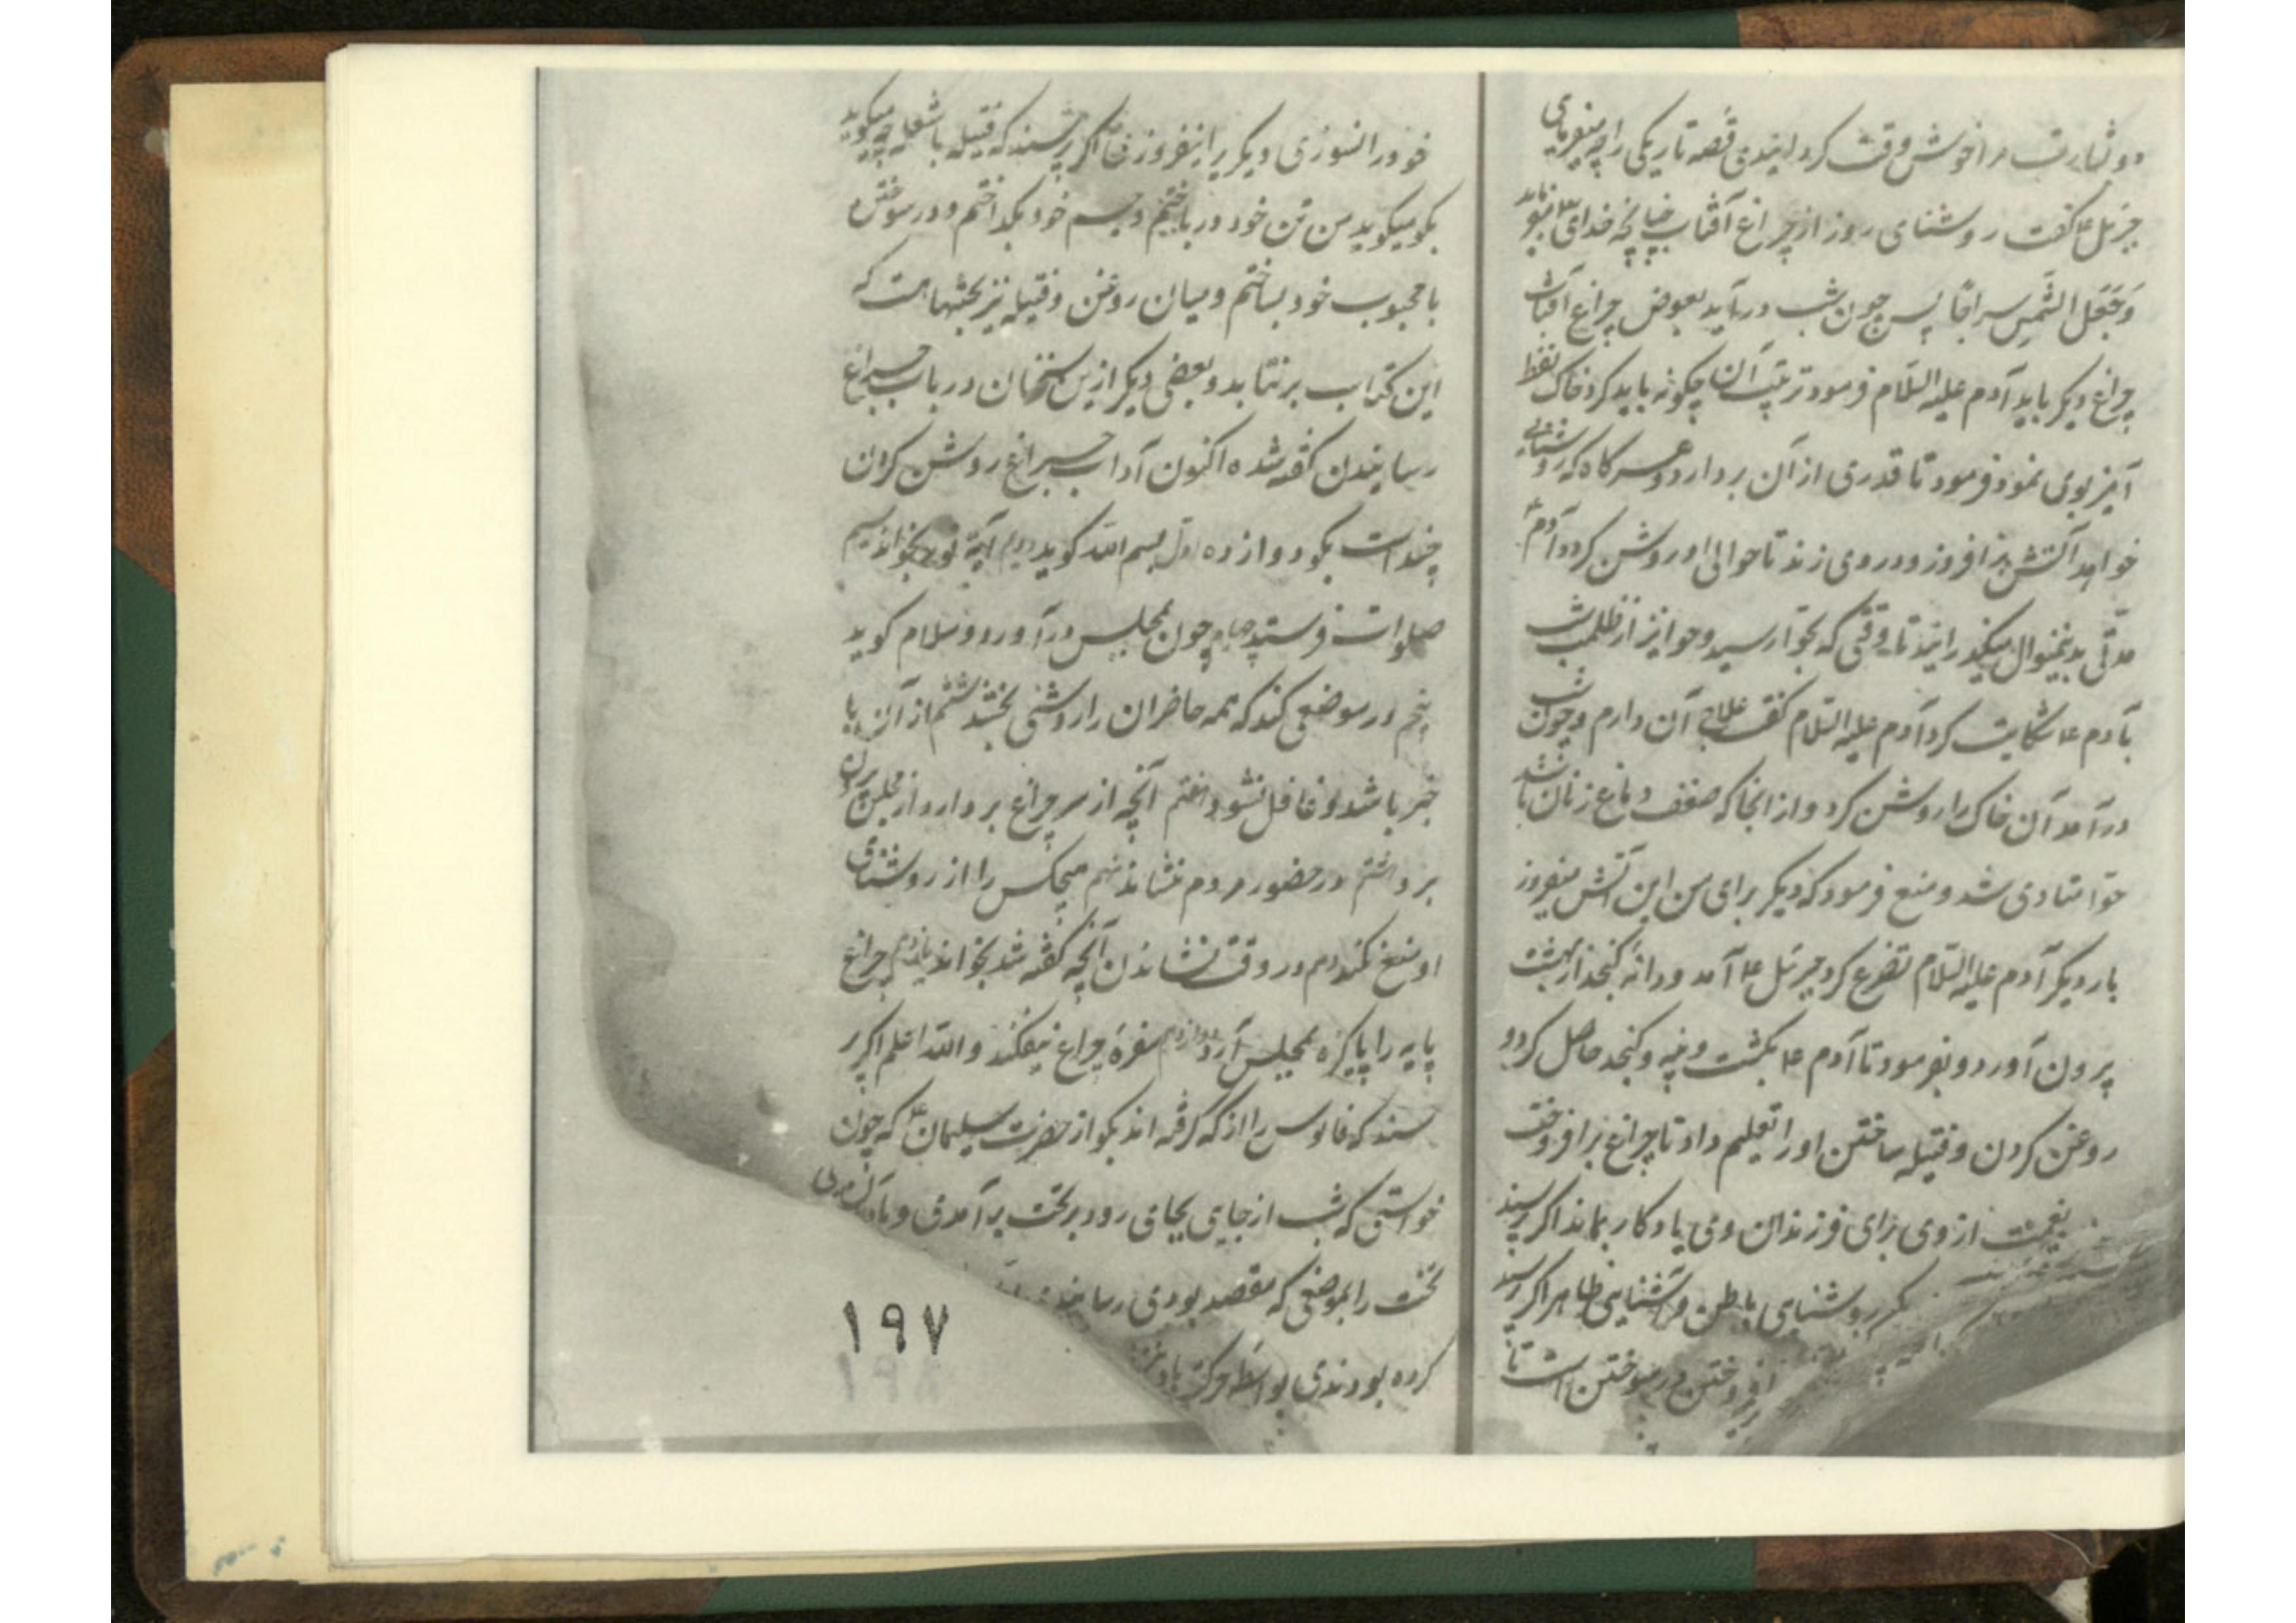 و بشارت مرا خوش وقت کردانیدی قصه تاریکی را چه میفرمای
جبرئیل ع گفت روشنای روز از چراغ آفتاب چنانچه خدای میفرماید
وَجَعَلَ الشَّمسَ سراجًا پس چون شب درآید بعوض چراغ آفتاب
چراغ دیکر باید آدم علیه السّلام فرمود ترتیب آن چکونه باید کرد خاک نفط
آمیز بوی نمود فرمود تا قدری از آن بردارد و هرگاه که روشنایی
خواهد آتش بر افروزد و در وی زند تا حوالی او روشن کردد آدم ع
مدّتی بدینمنوال میکذرانید تا وقتی که بحوّا رسید و حوا نیز از ظلمت شب
بآدم ع شکایت کرد آدم علیه السّلام گفت علاج آن دارم و چون شب
درآمد آن خاک را روشن کرد و از انجا که ضعف دماغ زنان باشد
حوّا متاذی شد و منع فرمود که دیکر برای من این آتش میفروز
بار دیکر آدم علیه السّلام تضرع کرد جبرئیل ع آمد و دانهٔ کنجد از بهشت
بیرون آورد و بفرمود تا آدم ع بکشت و پنبه و کنجد حاصل کرد و
روغن کردن و فتیله ساختن او را تعلیم داد تا چراغ بر افروخت
از وی برای فرزندان وی یادکار بماند اکر پرسند
روشنایی باطن و روشنایی ظاهر اکر پرسند
افروختن و سوختن است تا
خود را نسوزی دیکریرا نیفروزی اکر پرسند که فتیله با شعله چه میکوید
بکو میکوید من تن خود در باختم و جسم خود بکداختم و در سوختن
با محبوب خود بساختم و میان روغن و فتیله نیز بحثهاست که
این کتاب برنتابد و بعضی دیکر ازین سخنان در باب چراغ
رسانیدن گفته شده اکنون آداب چراغ روشن کردن
چند است بکو دوازده اول بسم الله کوید دوم آیهٔ نور بخواند سیم
صلوات فرستد چهارم چون بمجلس درآورد و سلام کوید
پنجم در موضعی کند که همه حاضران را روشنی بخشد ششم از آن با
خبر باشد و غافل نشود هفتم آنچه از سر چراغ بردارد از مجلس بیرون
برد هشتم در حضور مردم ننشاند نهم هیچکس را از روشنائی
او منع نکند دهم در وقت نشاندن آنچه گفته شد بخواند یازدهم چراغ
پایه را پاکیزه بمجلس آرد دوازدهم سفرهٔ چراغ بیفکند و الله اعلم اکر پر
سند که فانوس را از که گرفته اند بکو از حضرت سلیمان ع که چون
خواستی که شب از جایی بجای رود بر تخت برآمدی و باد آن
تخت را بموضعی که مقصد بودی رسانیدی
کرده بودندی بواسطه حرکت باد
۱۹۷